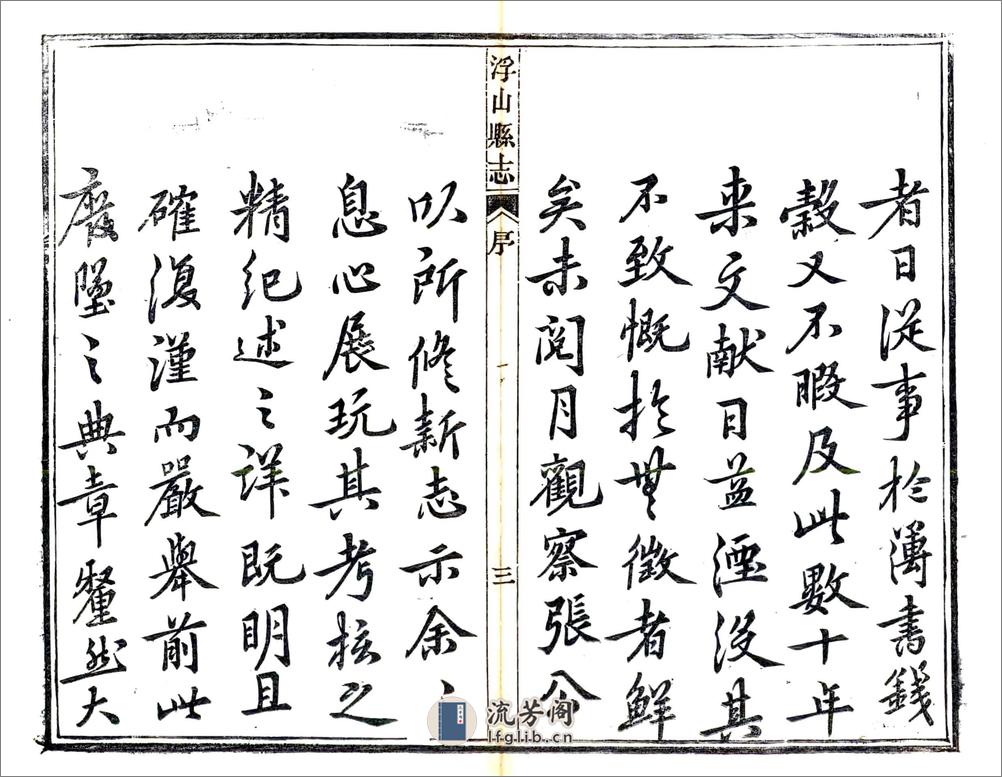 者日從事於簿書錢
穀又不暇及此數十年
来文献日益湮沒其
不致慨於無徵者鮮
矣未閱月觀察張公
浮山縣志
序
三
以所修新志示余〻
息心展玩其考核之
精紀述之詳既明且
確復謹而嚴舉前此
廢墜之典章釐然大
流芳阁
lfglib.cn